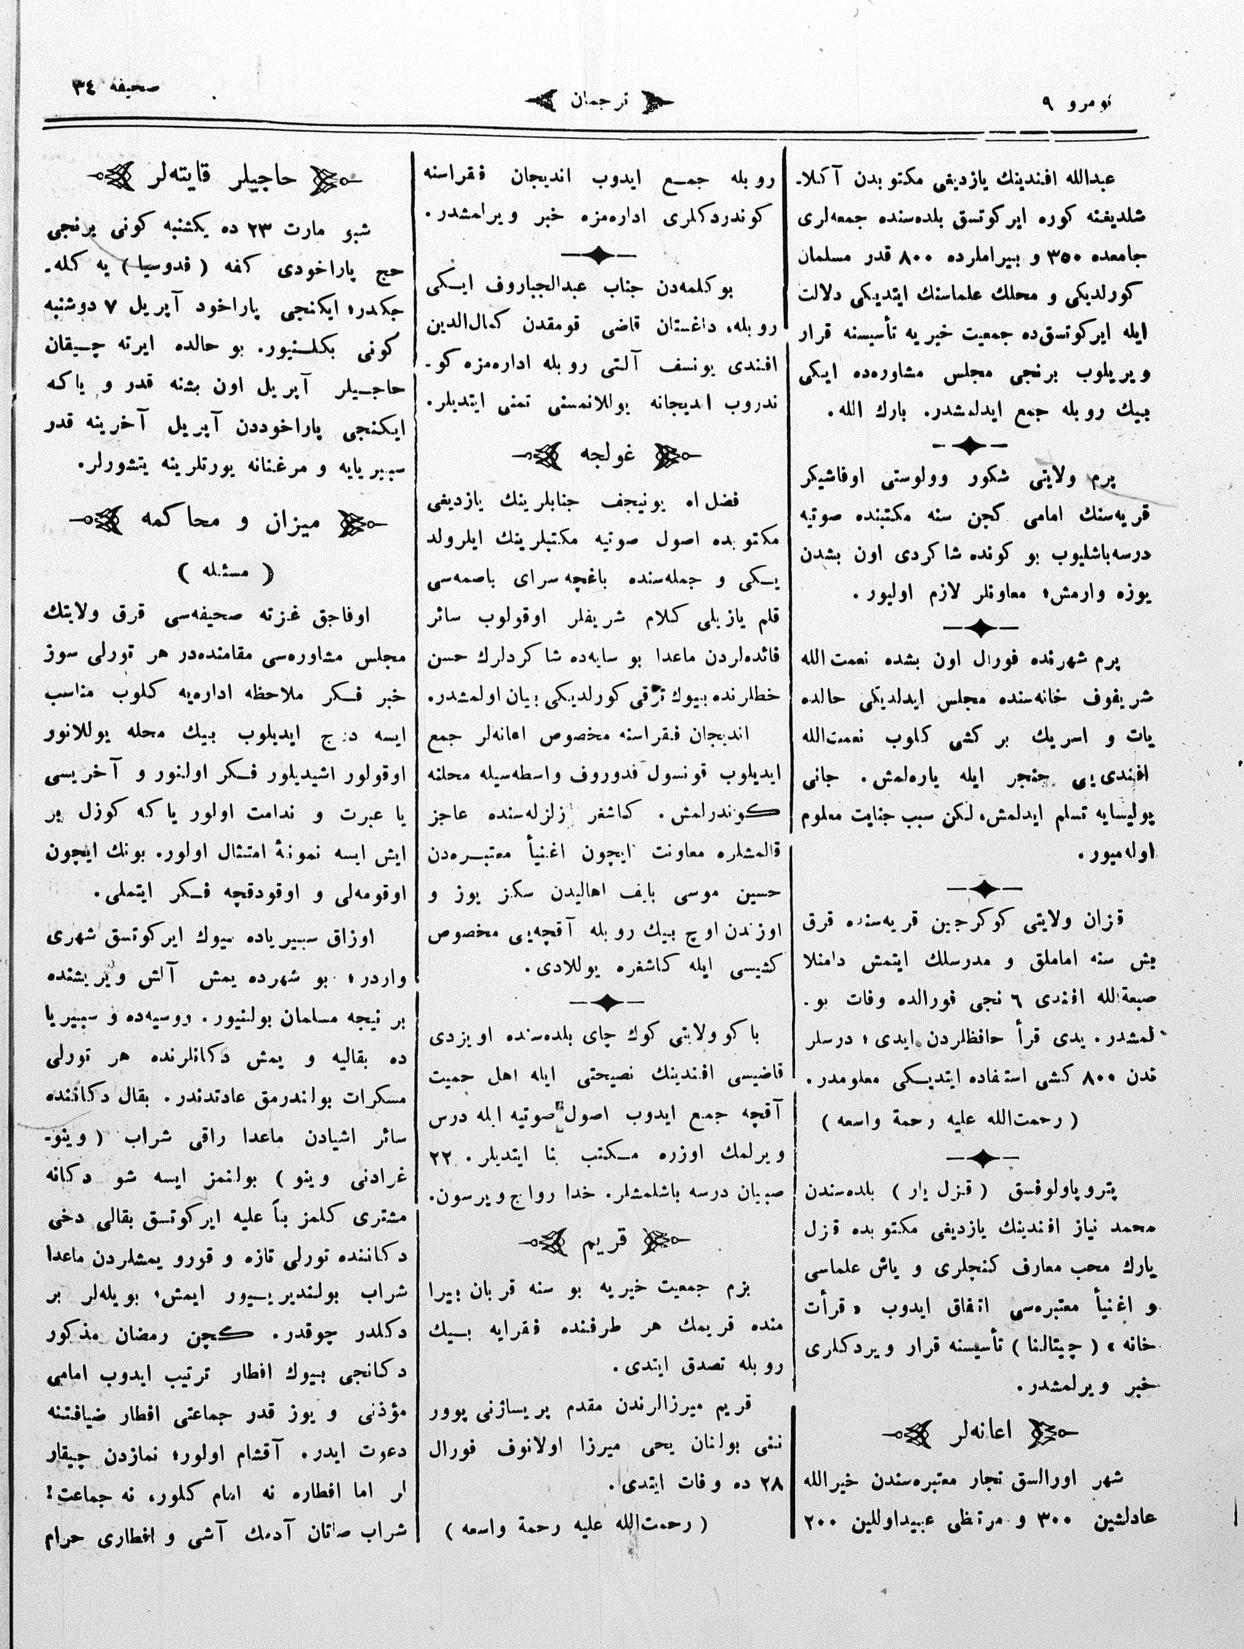 نومرو ٩
ترجمان
صحيفه ٣٤
عبدالله افندينك يازديغى مكتوبدن آكلا-
شلديغنه كوره ايركوتسق بلده‌سنده جمعه‌لرى
جامعده ٣٥٠ و بيراملرده ٨٠٠ قدر مسلمان
كورلديكى و محلك علماسنك ايتديكى دلالت
ايله ايركوتسق‌ده جمعيت خيريه تأسيسنه قرار
ويريلوب برنجى مجلس مشاوره‌ده ايكى
بيك روبله جمع ايدلمشدر. بارك الله.
پرم ولايتى شكور وولوستى اوفاشيكر
قريه‌سنك امامى كچن سنه مكتبنده صوتيه
درسه‌باشليوب بو كونده شاكردى اون بشدن
يوزه وارمش؛ معاونلر لازم اوليور.
پرم شهرنده فورال اون بشده نعمت‌الله
شريفوف خانه‌سنده مجلس ايدلديكى حالده
يات و اسريك بر كشى كلوب نعمت‌الله
افندى‌يى خنجر ايله ياره‌لمش. جانى
پوليسايه تسلم ايدلمش، لكن سبب جنايت معلوم
اوله‌ميور.
قزان ولايتى كوكرجين قريه‌سنده قرق
بش سنه اماملق و مدرسلك ايتمش داملا
صبغةالله افندى ٦ نجى فورالده وفات بو-
لمشدر. يدى قرأ حافظلردن ايدى؛ درسلر
ندن ٨٠٠ كشى استفاده ايتديكى معلومدر.
( رحمت‌الله عليه رحمة واسعه )
پتروپاولوفسق ( قزل يار ) بلده‌سندن
محمد نياز افندينك يازديغى مكتوبده قزل
يارك محب معارف كنجلرى و ياش علماسى
و اغنيأ معتبره‌سى اتفاق ايدوب « قرأت
خانه » ( چيتالنا ) تأسيسنه قرار ويردكلرى
خبر ويرلمشدر.
اعانه‌لر
شهر اورالسق تجار معتبره‌سندن خيرالله
عادلشين ٣٠٠ و مرتضى عبيداوللين ٢٠٠
روبله جمع ايدوب انديجان فقراسنه
كوندردكلرى اداره‌مزه خبر ويرلمشدر.
بوكلمه‌دن جناب عبدالجباروف ايكى
روبله، داغستان قاضى قومقدن كمال‌الدين
افندى يونسف آلتى روبله اداره‌مزه كو-
ندروب انديجانه يوللانمسنى تمنى ايتديلر.
غولجه
يونيچف جنابلرينك يازديغى
مكتوبده اصول صوتيه مكتبلرينك ايلرولد
يكى و جمله‌سنده باغچه‌سراى باصمه‌سى
قلم يازيلى كلام شريفلر اوقولوب سائر
فائده‌لردن ماعدا بو سايه‌ده شاكردلرك حسن
خطلرنده بيوك ترقى كورلديكى بيان اولمشدر.
انديجان فقراسنه مخصوص اعانه‌لر جمع
ايديلوب قونسول فدوروف واسطه‌سيله محلنه
كوندرلمش. كاشغر زلزله‌سنده عاجز
قالمشلره معاونت ايچون اغنيأ معتبره‌دن
حسين موسى بايف اهاليدن سكز يوز و
اوزندن اوچ بيك روبله آقچه‌يى مخصوص
كشيسى ايله كاشغره يوللادى.
باكو ولايتى كوك چاى بلده‌سنده اويزدى
قاضيسى افندينك نصيحتى ايله اهل حميت
آقچه جمع ايدوب اصول صوتيه ايله درس
ويرلمك اوزره مكتب بنا ايتديلر. ٢٢
صبيان درسه باشلمشلر. خدا رواج ويرسون.
قريم
بزم جمعيت خيريه بو سنه قربان بيرا
منده قريمك هر طرفنده فقرايه بيك
روبله تصدق ايتدى.
قريم ميرزالرندن مقدم پريساژنى پوور
ننى بولنان يحى ميرزا اولانوف فورال
٢٨ ده وفات ايتدى.
( رحمت‌الله عليه رحمة واسعه )
حاجيلر قايته‌لر
شبو مارت ٢٣ ده يكشنبه كونى برنجى
حج پاراخودى كفه ( فدوسيا ) يه كله-
جكدر؛ ايكنجى پاراخود آپريل ٧ دوشنبه
كونى بكلنيور. بو حالده ايرته چيقان
حاجيلر آپريل اون بشنه قدر و ياكه
ايكنجى پاراخوددن آپريل آخرينه قدر
سيبريايه و مرغنانه يورتلرينه يتشورلر.
ميزان و محاكمه
( مسئله )
اوفاجق غزته صحيفه‌سى قرق ولايتك
مجلس مشاوره‌سى مقامنده‌در هر تورلى سوز
خبر فكر ملاحظه اداره‌يه كلوب مناسب
ايسه درج ايديلوب بيك محله يوللانوو
اوقولور اشيديلور فكر اولنور و آخريسى
يا عبرت و ندامت اولور ياكه كوزل بر
ايش ايسه نمونهٔ امتثال اولور. بونك ايچون
اوقومه‌لى و اوقودقچه فكر ايتملى.
اوزاق سيبرياده بيوك ايركوتسق شهرى
واردر؛ بو شهرده يمش آلش ويريشنده
بر نيچه مسلمان بولنيور. روسيه‌ده و سيبريا
ده بقاليه و يمش دكانلرنده هر تورلى
مسكرات بولندرمق عادتدندر. بقال دكاننده
سائر اشيادن ماعدا راقى شراب ( وينو-
غرادنى وينو ) بولنمز ايسه شو دكانه
مشترى كلمز بناً عليه ايركوتسق بقالى دخى
دكاننده تورلى تازه و قورو يمشلردن ماعدا
شراب بولنديريور ايمش؛ بويله‌لر بر
دكلدر چوقدر. كچن رمضان مذكور
دكانجى بيوك افطار ترتيب ايدوب امامى
مؤذنى و يوز قدر جماعتى افطار ضيافتنه
دعوت ايدر. آقشام اولور؛ نمازدن چيقار
لر اما افطاره نه امام كلور، نه جماعت!
شراب صاتان آدمك آشى و افطارى حرام